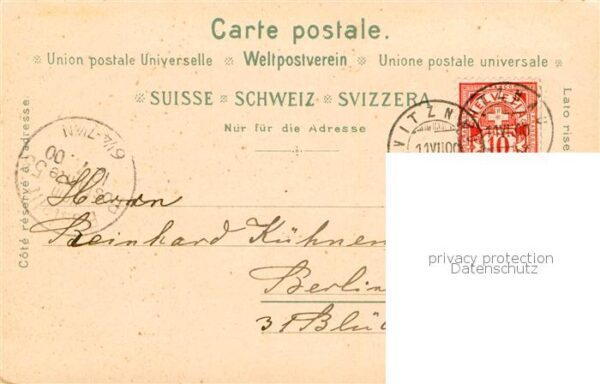 Carte postale.
Union postale Universelle Weltpostverein Unione postale universale
SUISSE SCHWEIZ SVIZZERA
Nur für die Adresse
Côté réservé à l'adresse.
Lato rise
HELVETIA
10
VITZN
11 VII 00
Herrn
Reinhard Kühne
Berlin
31 Blü
privacy protection
Datenschutz